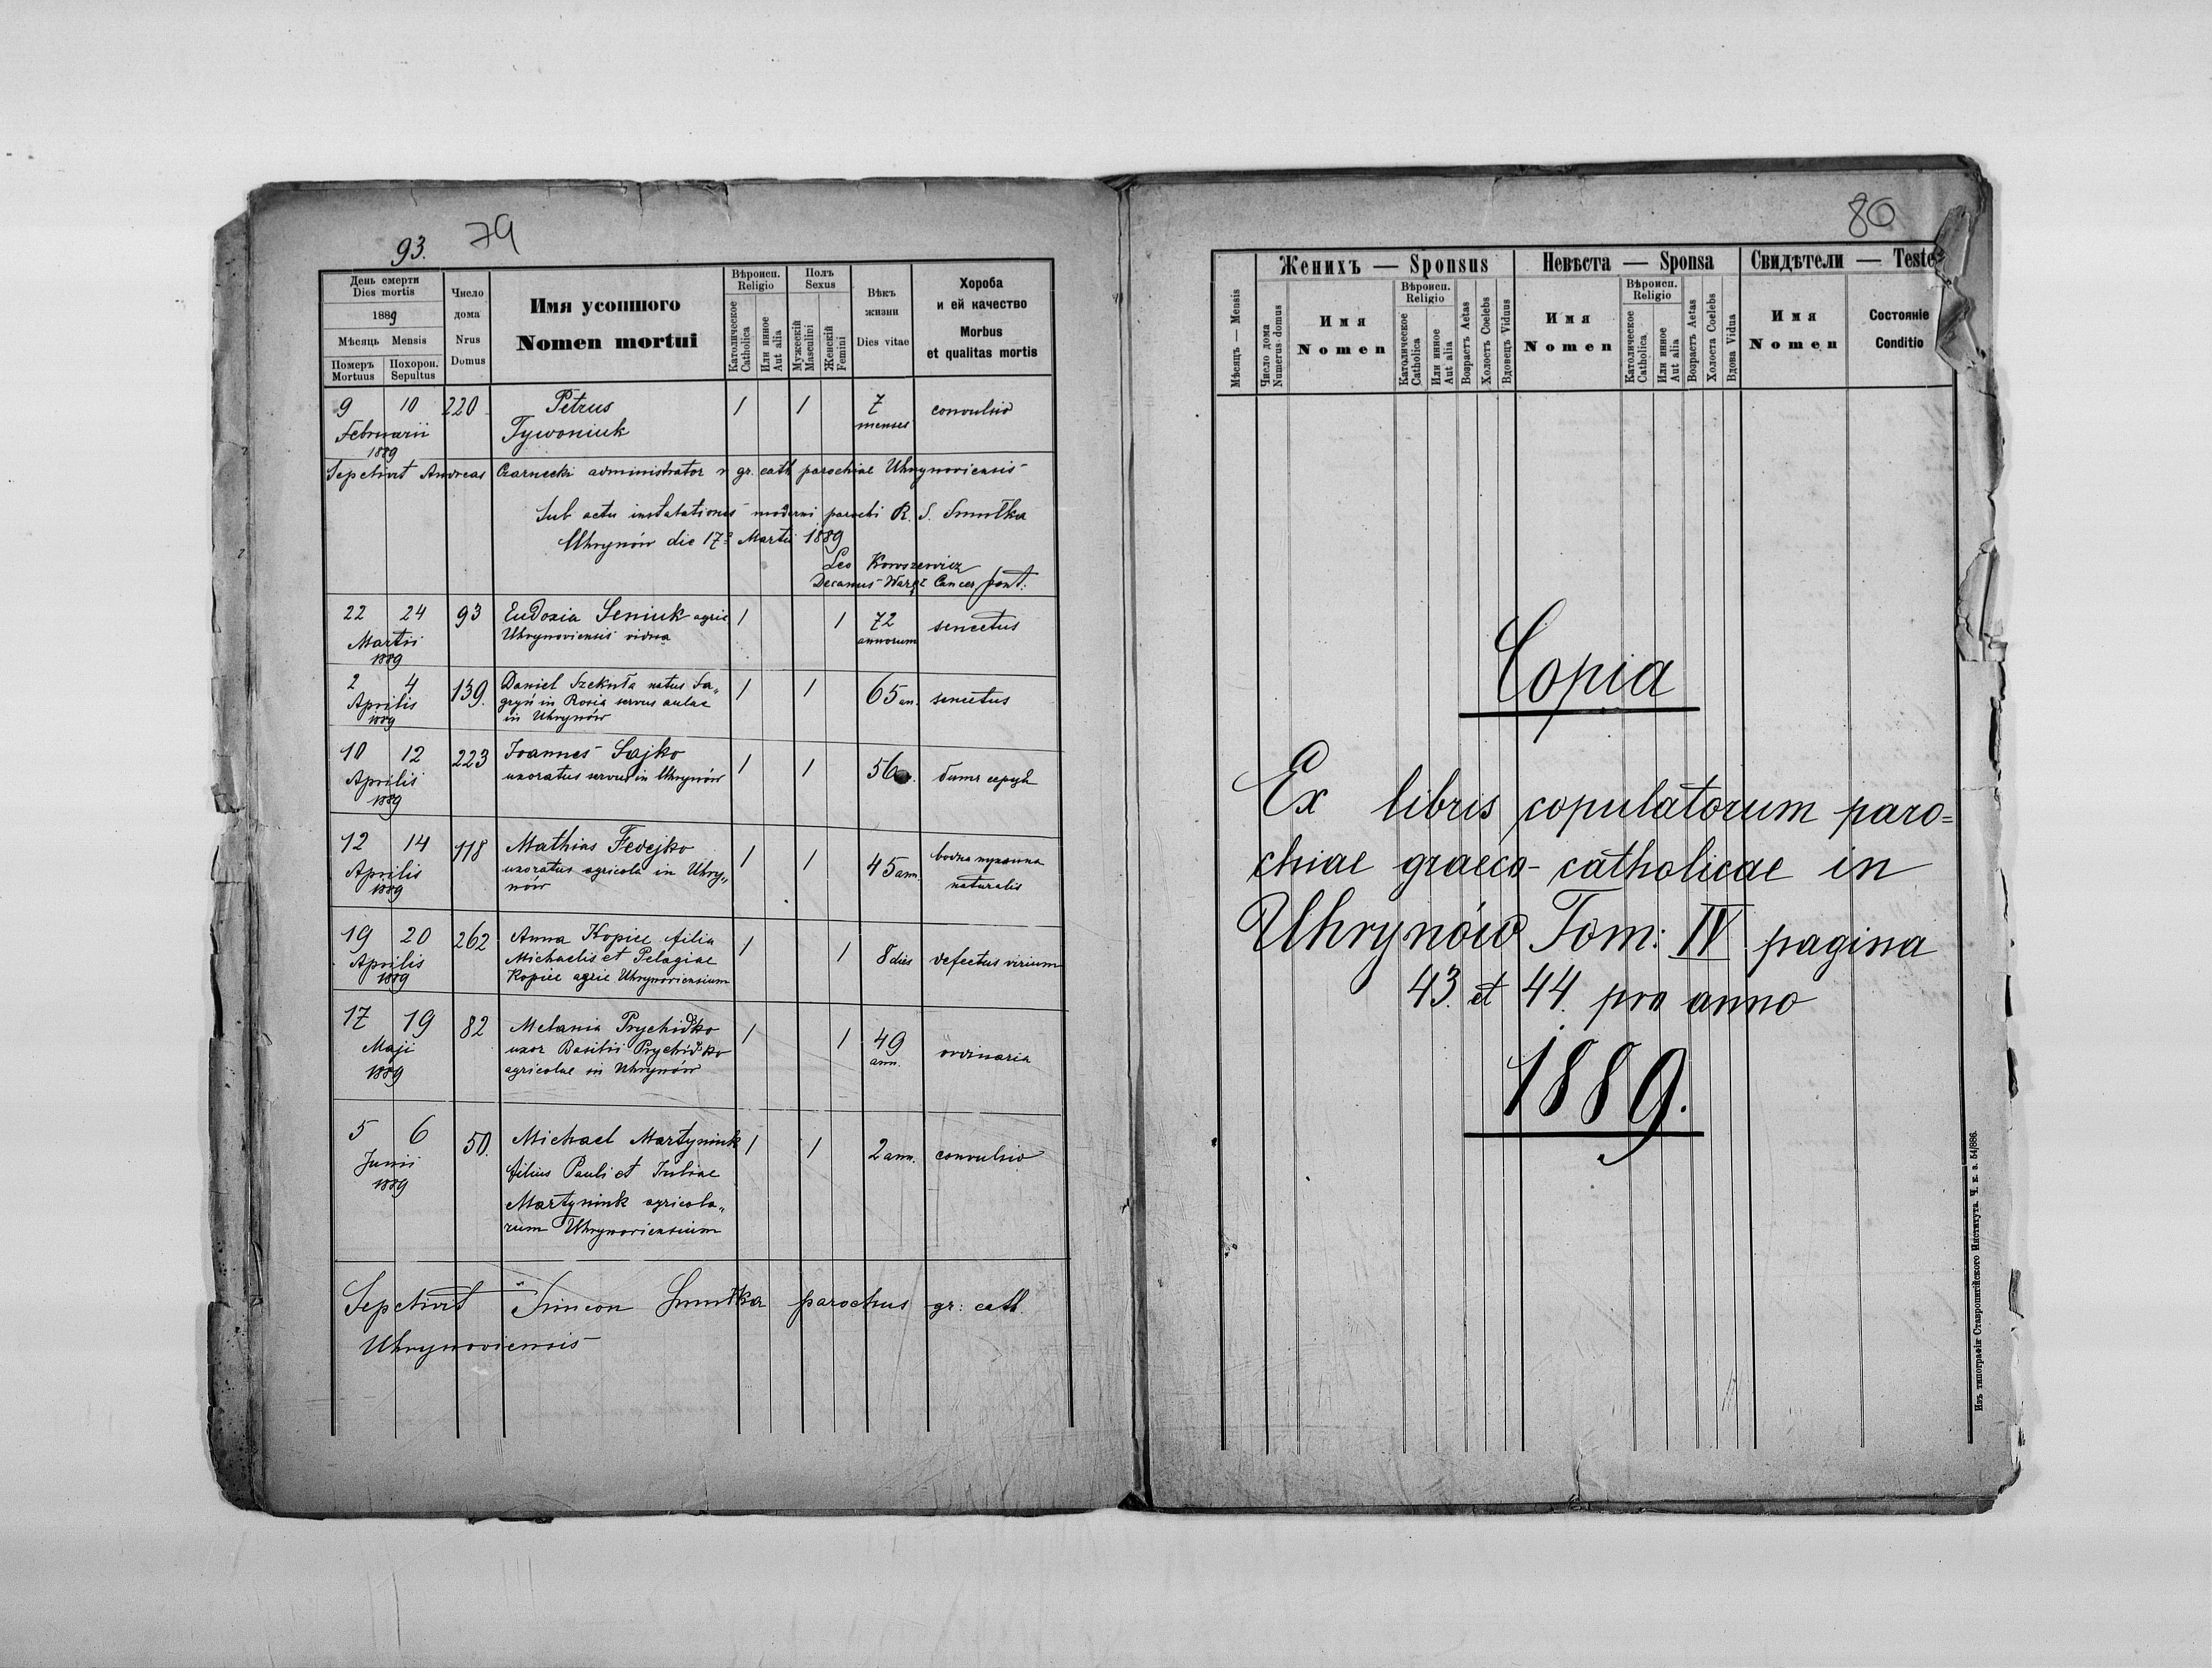 93.
79
День смерти
Dies mortis
1889
Мѣсяць Mensis
Померъ
Mortuus
Похорон.
Sepultus
Число
дома
Nrus
Domus
Имя усопшого
Nomen mortui
Вѣроисп.
Religio
Католическое
Catholica
Или инное
Aut alia
Полъ
Sexus
Мужескій
Masculini
Женскій
Femini
Вѣкъ
жизни
Dies vitae
Хороба
и ей качество
Morbus
et qualitas mortis
9 10 220 Petrus 1 1 7 convulsio
Februarii Tywoniuk menses
1889
Sepelivit Andreas Czarnecki administrator gr. cath parochiae Uhrynoviensis
Sub actu instalationis moderni parochi R. S. Smulka
Uhrynów die 17 Martii 1889
Leo
Decanus
22 24 93 Eudoxia Seniuk agric 1 1 72 senectus
Martii Uhrynoviensis vidua annorum
1889
2 4 139. Daniel Szekuła natus Sa„ 1 1 65 an. senectus
Aprilis gryń in Rosia servus aulae
1889 in Uhrynów
10 12 223 Joannes Sajko 1 1 56
Aprilis uxoratus servus in Uhrynów
1889
12 14 118 Mathias Fedejko 1 1 45 ann.
Aprilis uxoratus agricola in Uhry„ naturalis
1889 nów
19 20 262 Anna Kopice filia 1 1 8 dies defectus virium
Aprilis Michaelis et Pelagiae
1889 Kopice agric Uhrynoviensium
17 19 82 Melania Prychidko 1 1 49 ordinaria
Maji uxor Basilii Prychidko ann.
1889 agricolae in Uhrynów
5 6 50. Michael Martyniuk 1 1 2 ann. convulsio
Junii filius Pauli et Juliae
1889 Martyniuk agricola„
rum Uhrynoviensium
Sepelivit Simeon Smulka parochus gr: cath.
Uhrynoviensis
80
Мѣсяцъ — Mensis
Женихъ — Sponsus
Число дома
Numerus domus
Имя
Nomen
Вѣроисп.
Religio
Католическое
Catholica
Или инное
Aut alia
Возрастъ Aetas
Холостъ Coelebs
Вдовецъ Viduus
Невѣста — Sponsa
Имя
Nomen
Вѣроисп.
Religio
Католическое
Catholica
Или инное
Aut alia
Возрастъ Aetas
Холоста Coelebs
Вдова Vidua
Свидѣтели — Teste
Имя
Nomen
Состояніе
Conditio
Copia
Ex libris copulatorum paro=
chiae graeco-catholicae in
Uhrynów Tom: IV pagina
43. et 44. pro anno
1889.
Изъ типографіи Ставропигійского Института. Ч. к. а. 54/886.